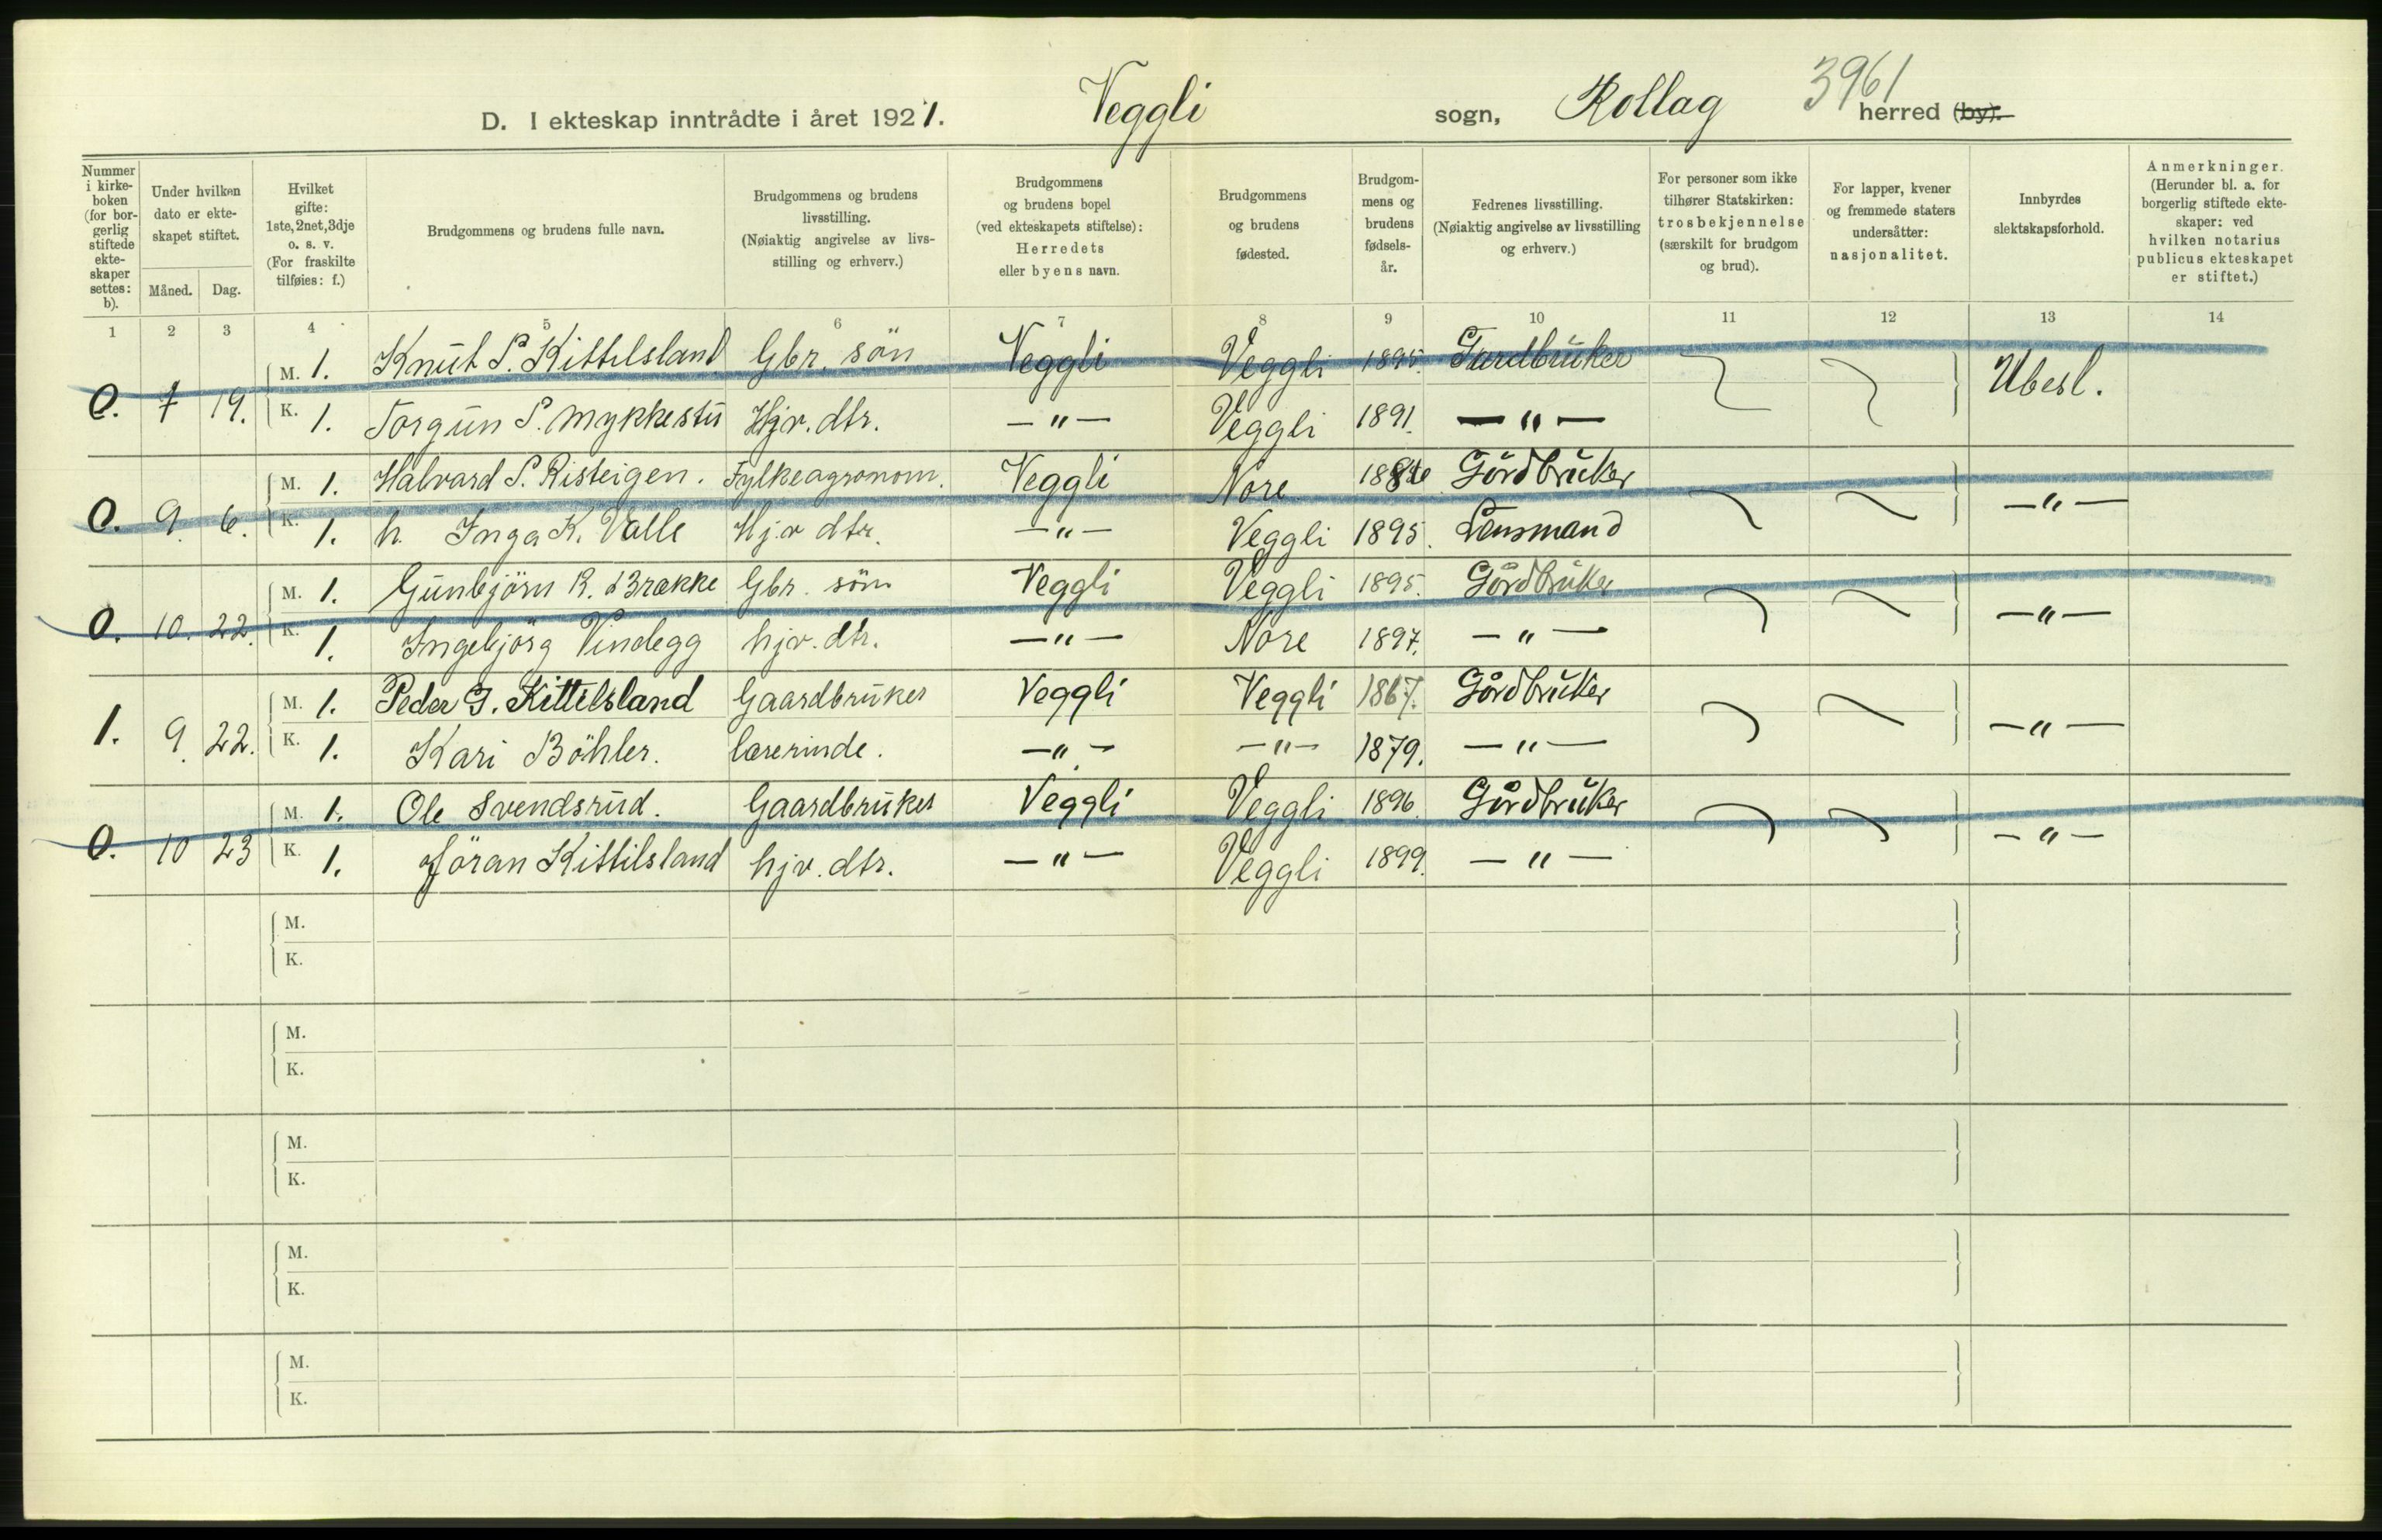 3961
D. I ekteskap inntrådte i året 1921. Veggli sogn, Rollag herred (by).
Nummer i kirke- boken (for bor- gerlig stiftede ekte- skaper settes: b).
Under hvilken dato er ekte- skapet stiftet.
Måned. Dag.
Hvilket gifte: 1ste, 2net, 3dje o. s. v. (For fraskilte tilføies: f.)
Brudgommens og brudens fulle navn.
Brudgommens og brudens livsstilling. (Nøiaktig angivelse av livs- stilling og erhverv.)
Brudgommens og brudens bopel (ved ekteskapets stiftelse): Herredets eller byens navn.
Brudgommens og brudens fødested.
Brudgom- mens og brudens fødsels- år.
Fedrenes livsstilling. (Nøiaktig angivelse av livsstilling og erhverv.)
For personer som ikke tilhører Statskirken: trosbekjennelse (særskilt for brudgom og brud).
For lapper, kvener og fremmede staters undersåtter: nasjonalitet.
Innbyrdes slektskapsforhold.
Anmerkninger. (Herunder bl. a. for borgerlig stiftede ekte- skaper: ved hvilken notarius publicus ekteskapet er stiftet.)
1 2 3 4 5 6 7 8 9 10 11 12 13 14
0. 7 19. M. 1. Knut P. Kittilsland Gbr. sön Veggli Veggli 1895. Gardbruker Ubesl.
K. 1. Torgun P. Mykkestu Hjv. dtr. — " — Veggli 1891. — " —
0. 9. 6. M. 1. Halvard P. Risteigen. Fylkeagronom. Veggli Nore Gårdbruker — " —
K. 1. h. Inga K. Valle Hjv dtr. — " — Veggli 1895. Lensmand
0. 10. 22. M. 1. Gunbjörn R. Brække Gbr. sön Veggli Veggli 1895. Gårdbruker — " —
K. 1. Ingebjörg Vindegg hjv. dtr. — " — Nore 1897. — " —
1. 9. 22. M. 1. Peder G. Kittilsland Gaardbruker Veggli Veggli 1867. Gårdbruker — " —
K. 1. Kari Böhler. lærerinde. — " — — " — 1879. — " —
0. 10 23 M. 1. Ole Svendsrud. Gaardbruker Veggli Veggli 1896. Gårdbruker — " —
K. 1. Jöran Kittilsland hjv. dtr. — " — Veggli 1899. — " —
M.
K.
M.
K.
M.
K.
M.
K.
M.
K.